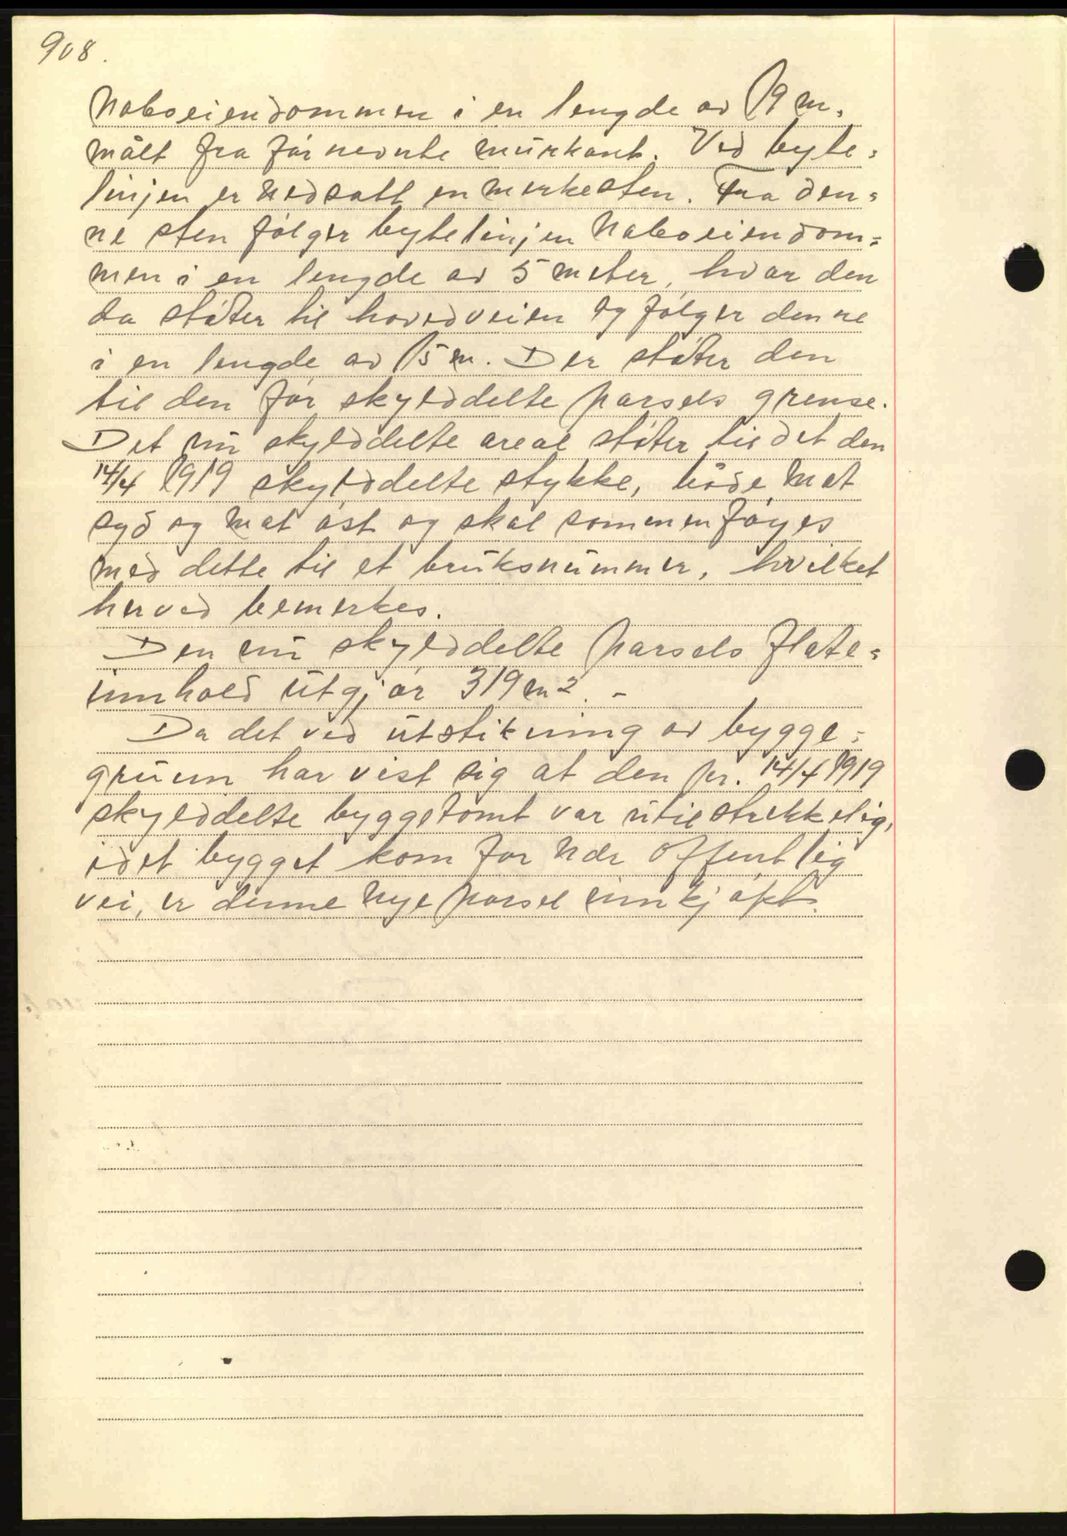 908.
naboeiendommen i en lengde av 19 m.
målt fra før nevnte murkant. Ved byte=
linjen er nedsatt en merkesten. Fra den=
ne sten følger bytelinjen naboeiendom=
men i en lengde av 5 meter, hvor den
da støter til hovedveien og følger denne
i en lengde av 15 m. Der støter den
til den før skylddelte parsels grense.
Det nu skylddelte areal støter til det den
14/4 1919 skylddelte stykke, både mot
syd og mot øst og skal sammenføyes
med dette til et bruksnummer, hvilket
herved bemerkes.
Den nu skylddelte parsels flate=
innhold utgjør 319 m2. -
Da det ved utstikning av bygge=
grunn har vist sig at den pr. 14/4 1919
skylddelte byggetomt var utilstrekkelig,
idet bygget kom for nær offentlig
vei, er denne nye parsel innkjøpt.